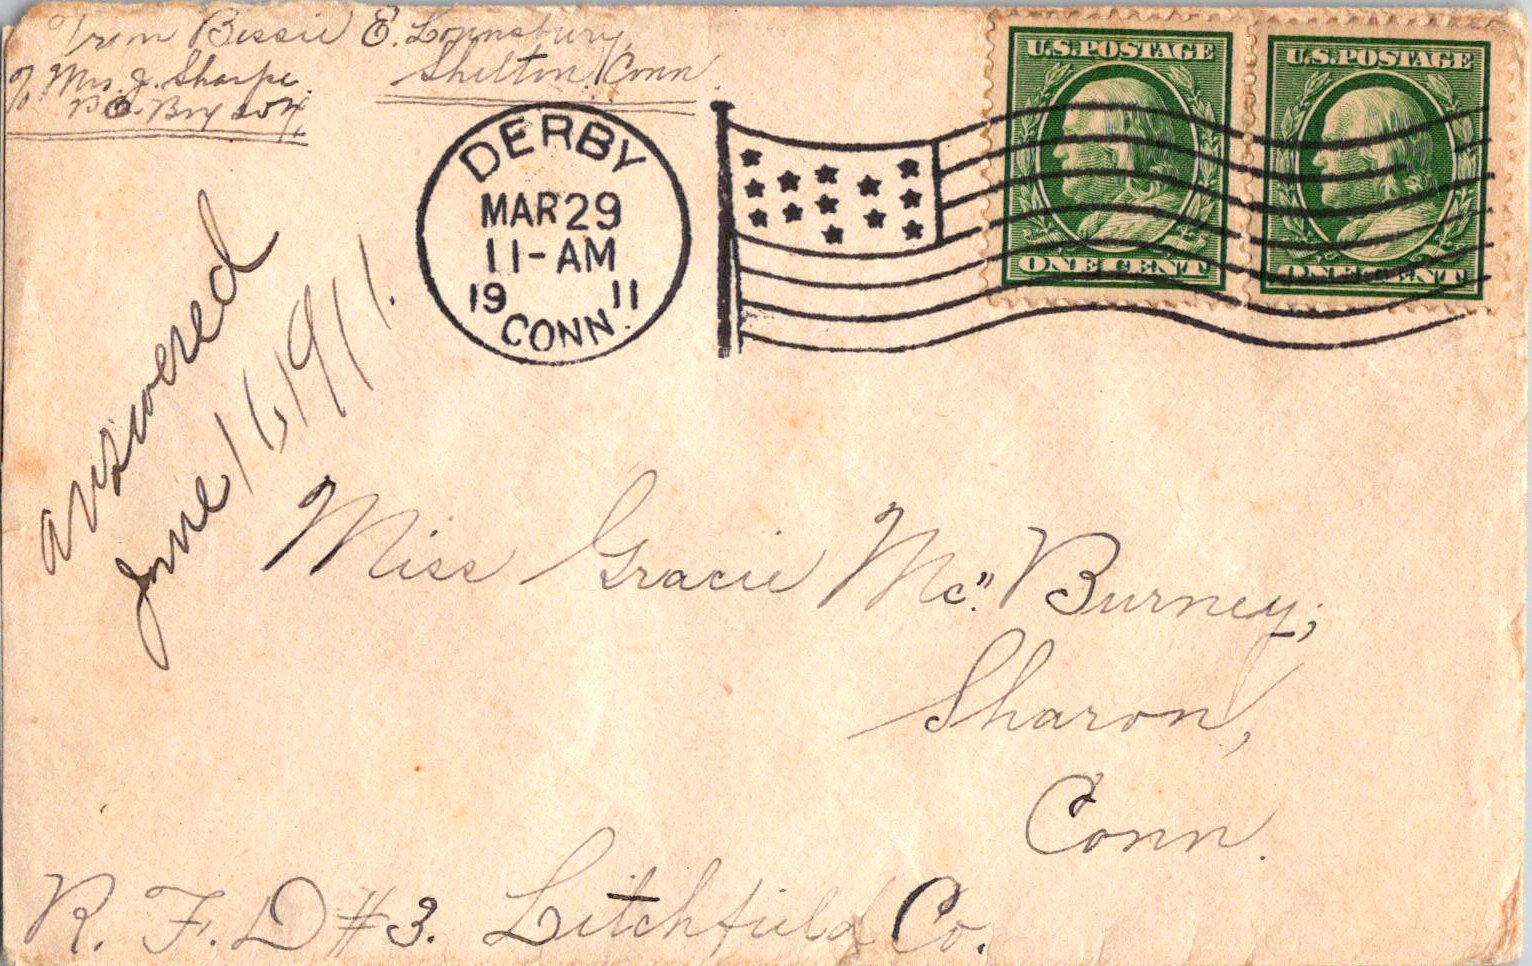 From Bessie E. Lounsbury,
℅ Mrs. J. Sharpe. Shelton, Conn.
P.O. Box 204.
DERBY
MAR 29
11-AM
1911
CONN.
U.S. POSTAGE
ONE CENT
U.S. POSTAGE
ONE CENT
answered
June 16, 1911.
Miss Gracie Mc" Burney,
Sharon,
Conn.
R. F. D #3. Litchfield Co.